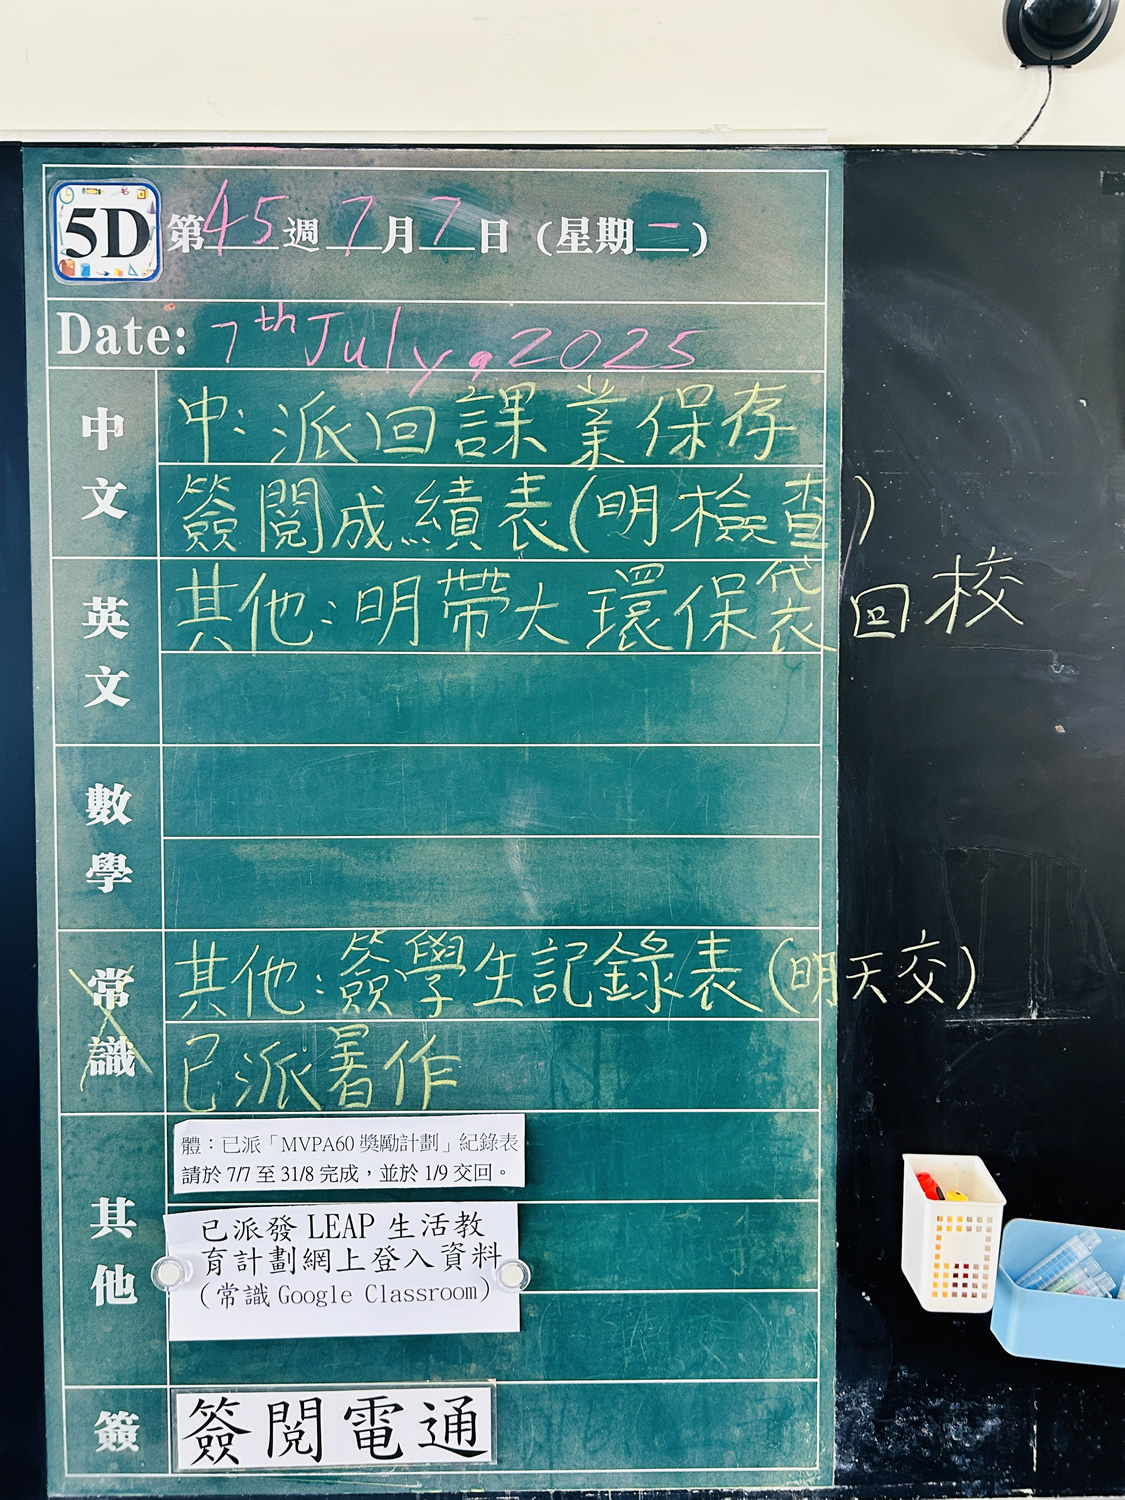 5D 第45週7月7日(星期一)
Date: 7th July, 2025
中文
中:派回課業保存
簽閱成績表(明檢查)
英文
其他:明帶大環保袋回校
數學
常識
其他:簽學生記錄表(明天交)
已派暑作
其他
體:已派「MVPA60獎勵計劃」紀錄表
請於 7/7 至 31/8 完成,並於 1/9 交回。
已派發 LEAP 生活教
育計劃網上登入資料
(常識 Google Classroom)
簽
簽閱電通